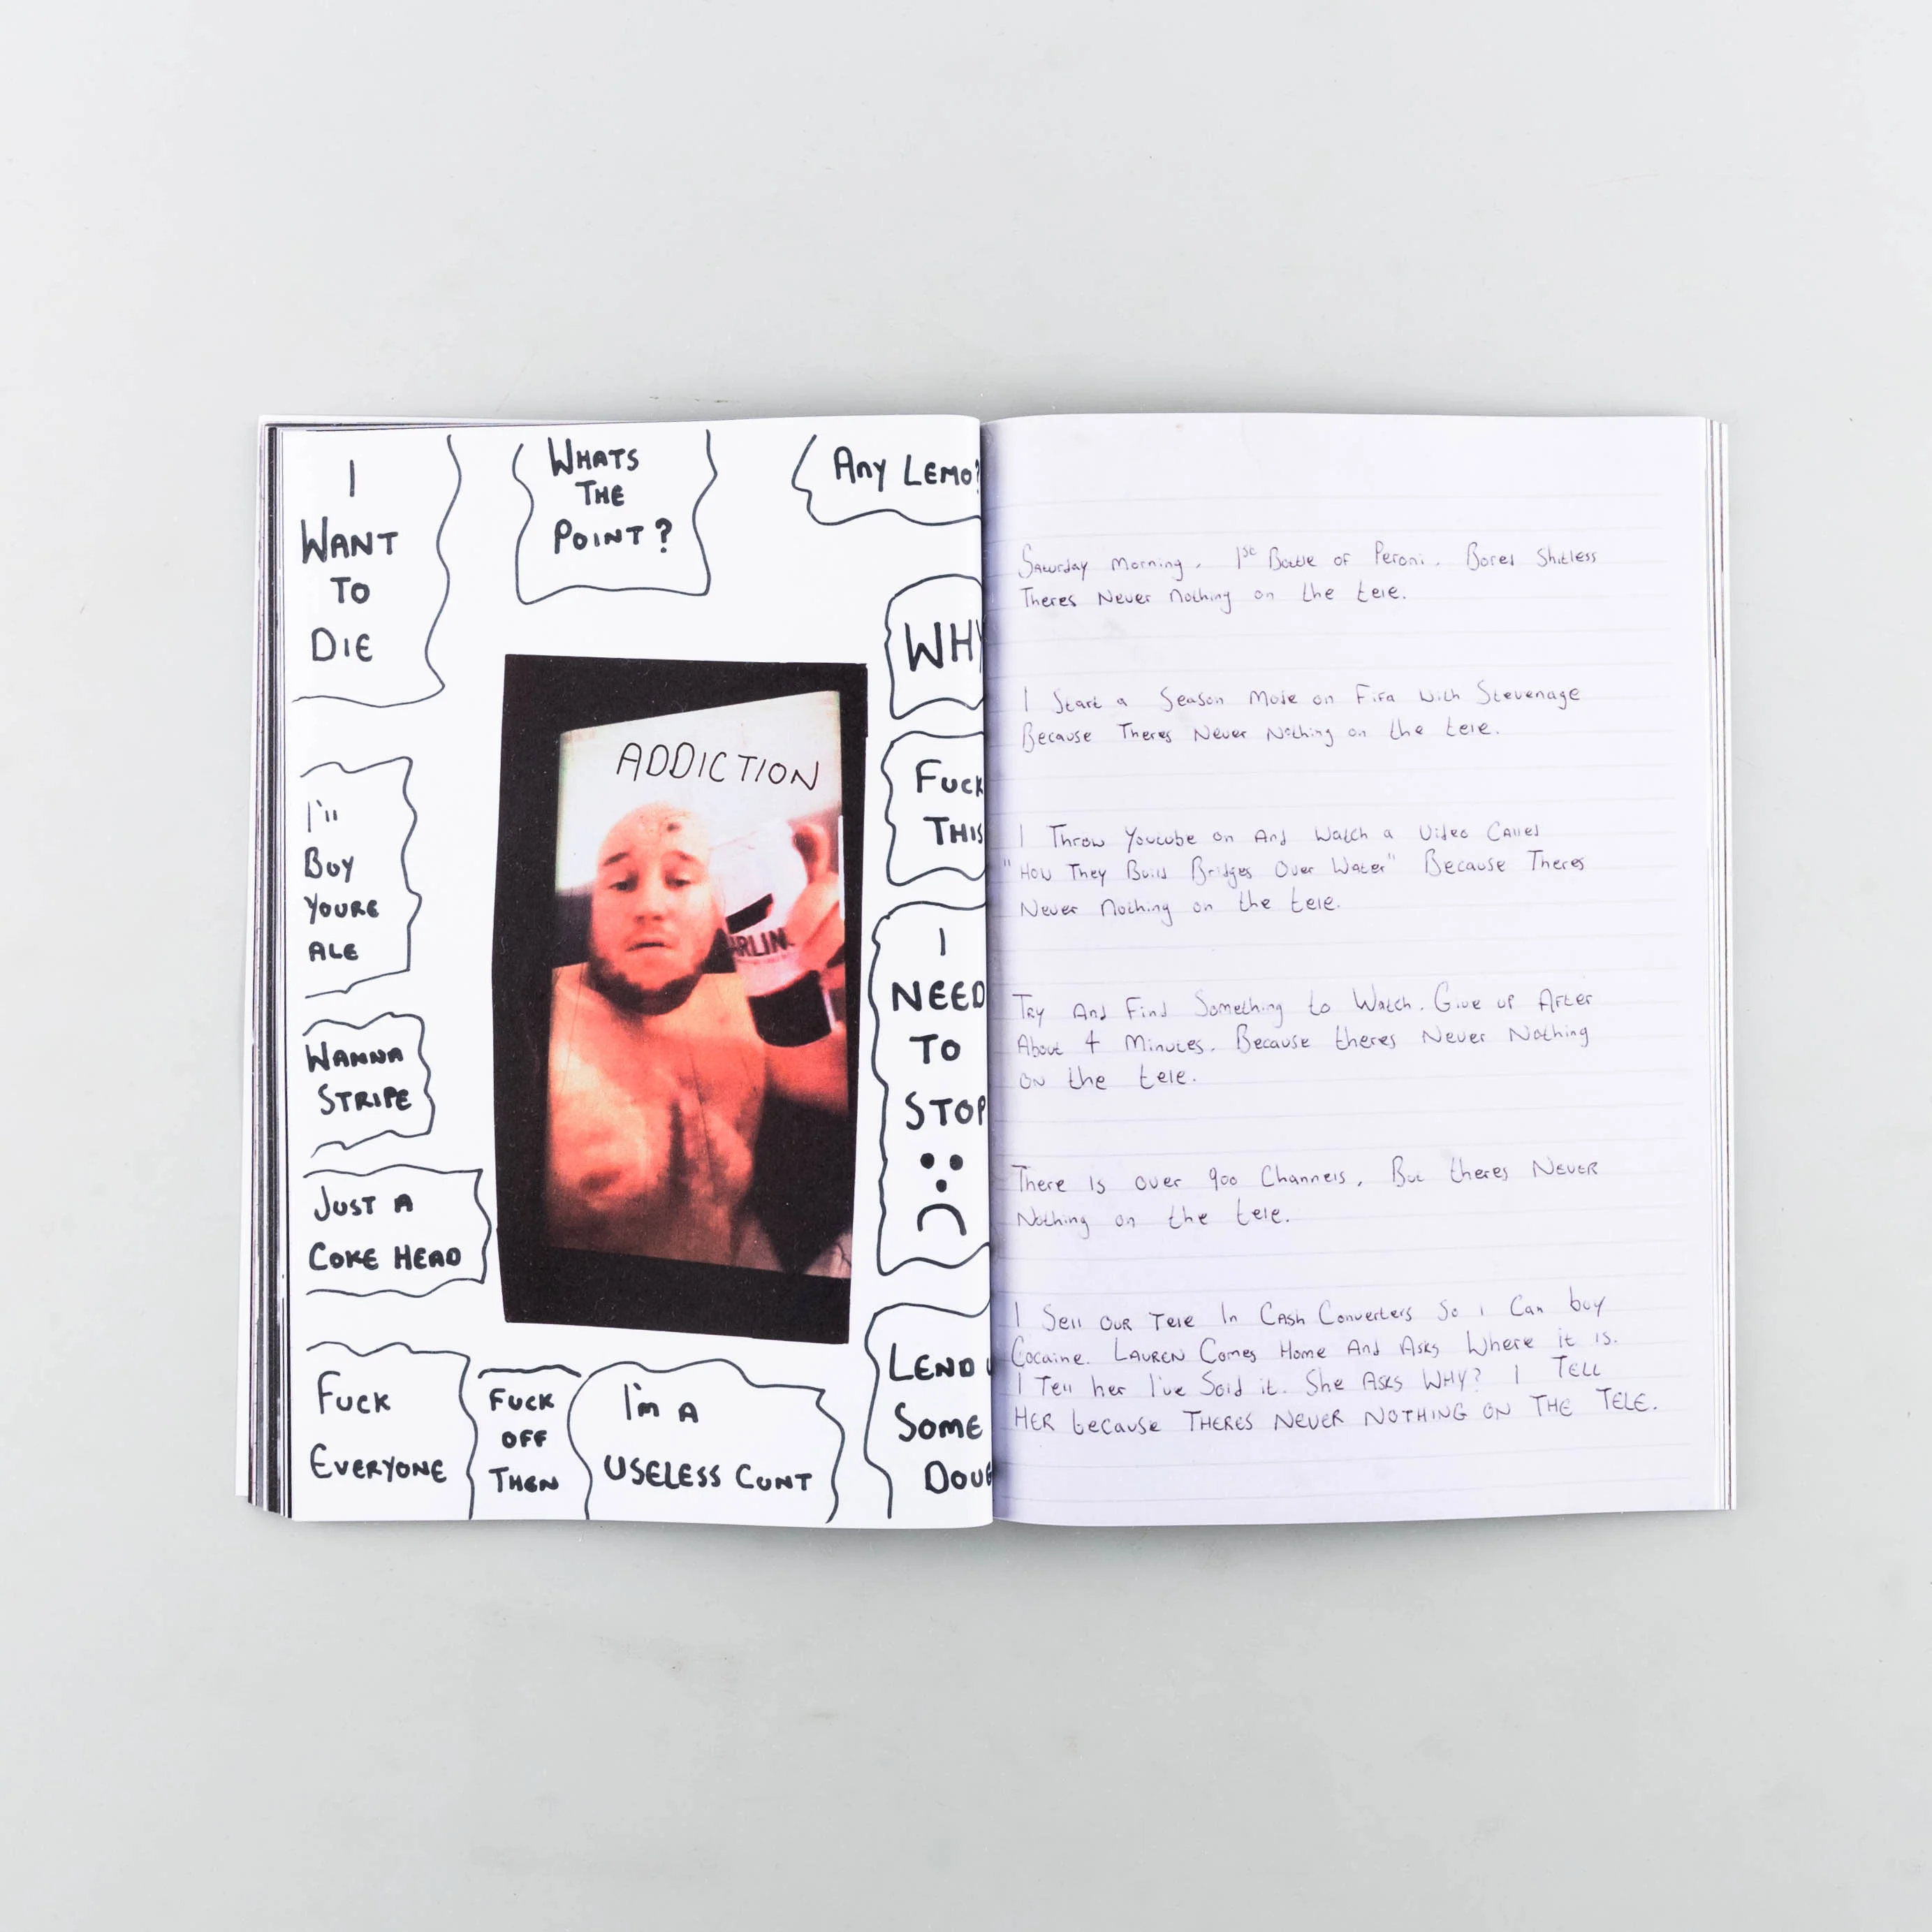 I
WANT
TO
DIE
WHATS
THE
POINT?
ANY LEMO?
WHY
FUCK
THIS
I'll
BUY
YOURE
ALE
WANNA
STRIPE
JUST A
COKE HEAD
FUCK
EVERYONE
FUCK
OFF
THEN
I'm A
USELESS CUNT
I
NEED
TO
STOP
LEND
SOME
DOU
ADDICTION
ARLIN
Saturday Morning. 1st Bottle of Peroni. Bored Shitless
Theres Never Nothing on the tele.
I Start a Season Mode on Fifa With Stevenage
Because Theres Never Nothing on the tele.
I Throw Youtube on And Watch a Video Called
"How They Build Bridges Over Water" Because Theres
Never Nothing on the tele.
Try And Find Something to Watch. Give up After
About 4 Minutes. Because theres Never Nothing
ON the tele.
There Is over 900 Channels, But theres NEVER
Nothing on the tele.
I Sell OUR Tele In Cash Converters So i Can buy
Cocaine. LAUREN Comes Home And Asks Where it is.
I Tell her I've Sold it. She Asks WHY? I TELL
HER because THERES NEVER NOTHING ON THE TELE.